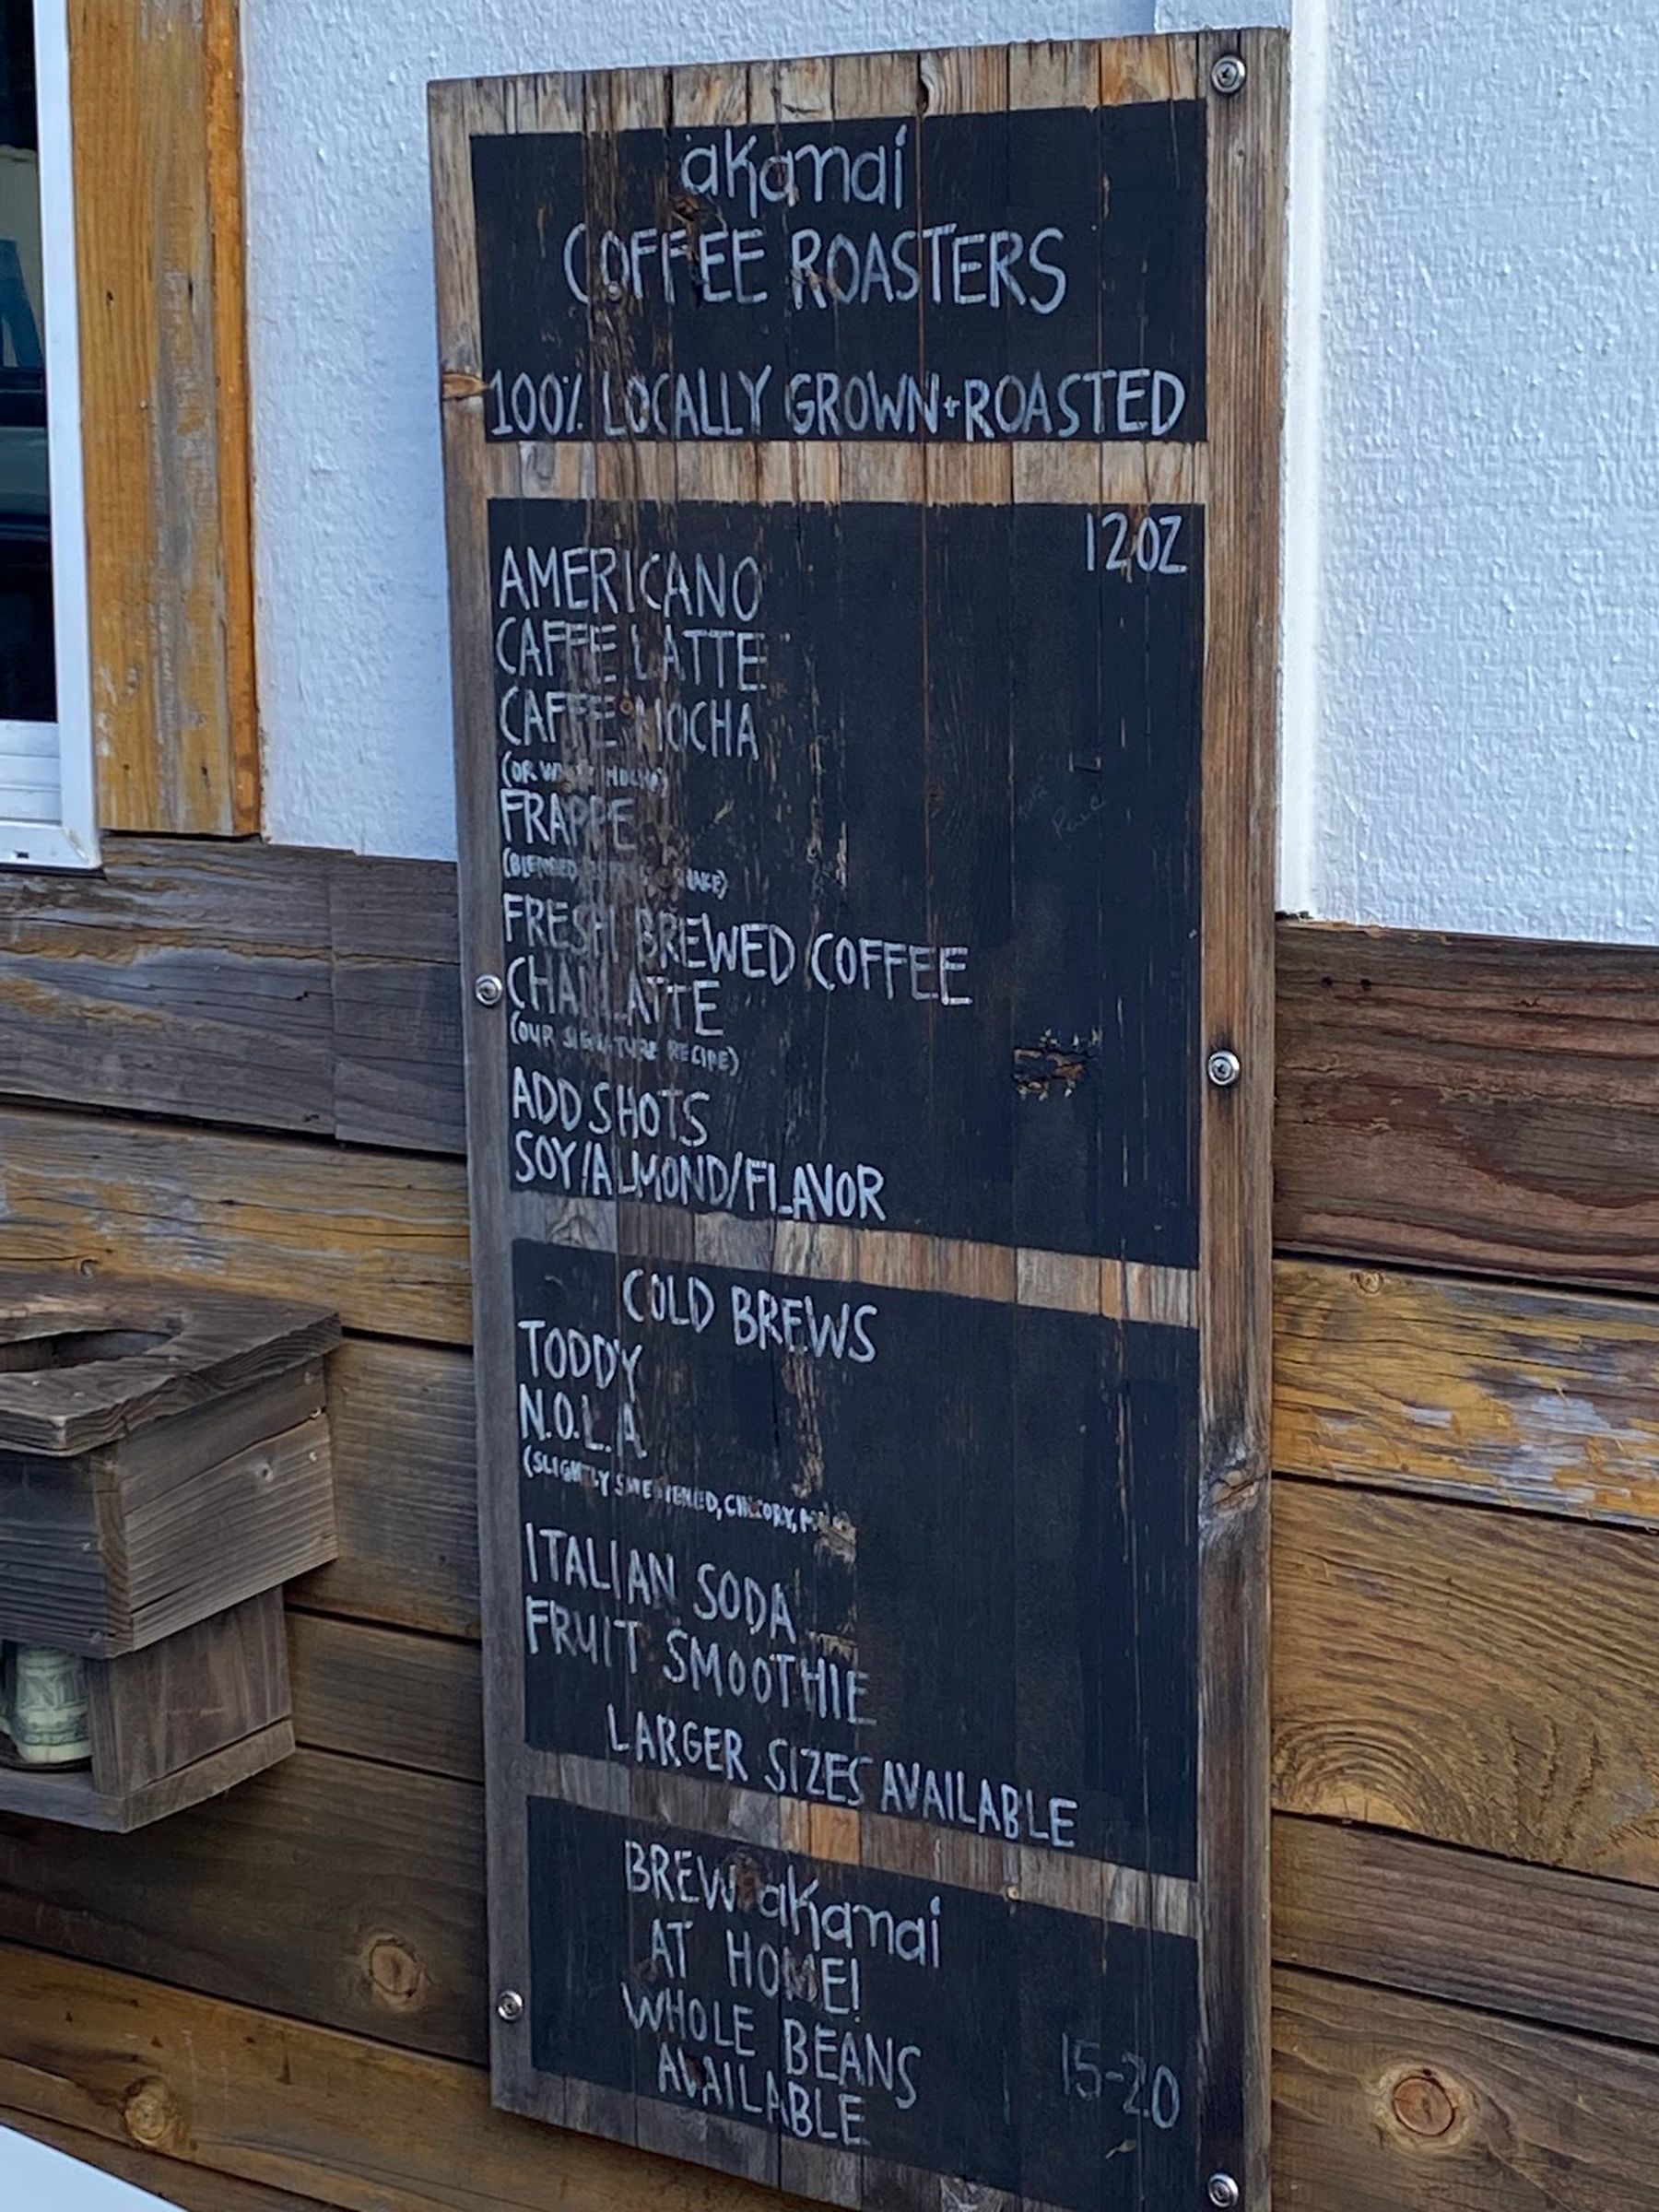 akamai
COFFEE ROASTERS
100% LOCALLY GROWN+ROASTED
12OZ
AMERICANO
CAFFE LATTE
CAFFE MOCHA
(OR WHITE MOCHA)
FRAPPE
(BLENDED SHAKE)
FRESH BREWED COFFEE
CHAI LATTE
(OUR SIGNATURE RECIPE)
ADD SHOTS
SOY/ALMOND/FLAVOR
COLD BREWS
TODDY
N.O.L.A.
(SLIGHTLY SWEETENED, CHICORY,
ITALIAN SODA
FRUIT SMOOTHIE
LARGER SIZES AVAILABLE
BREW akamai
AT HOME!
WHOLE BEANS
AVAILABLE
15-20